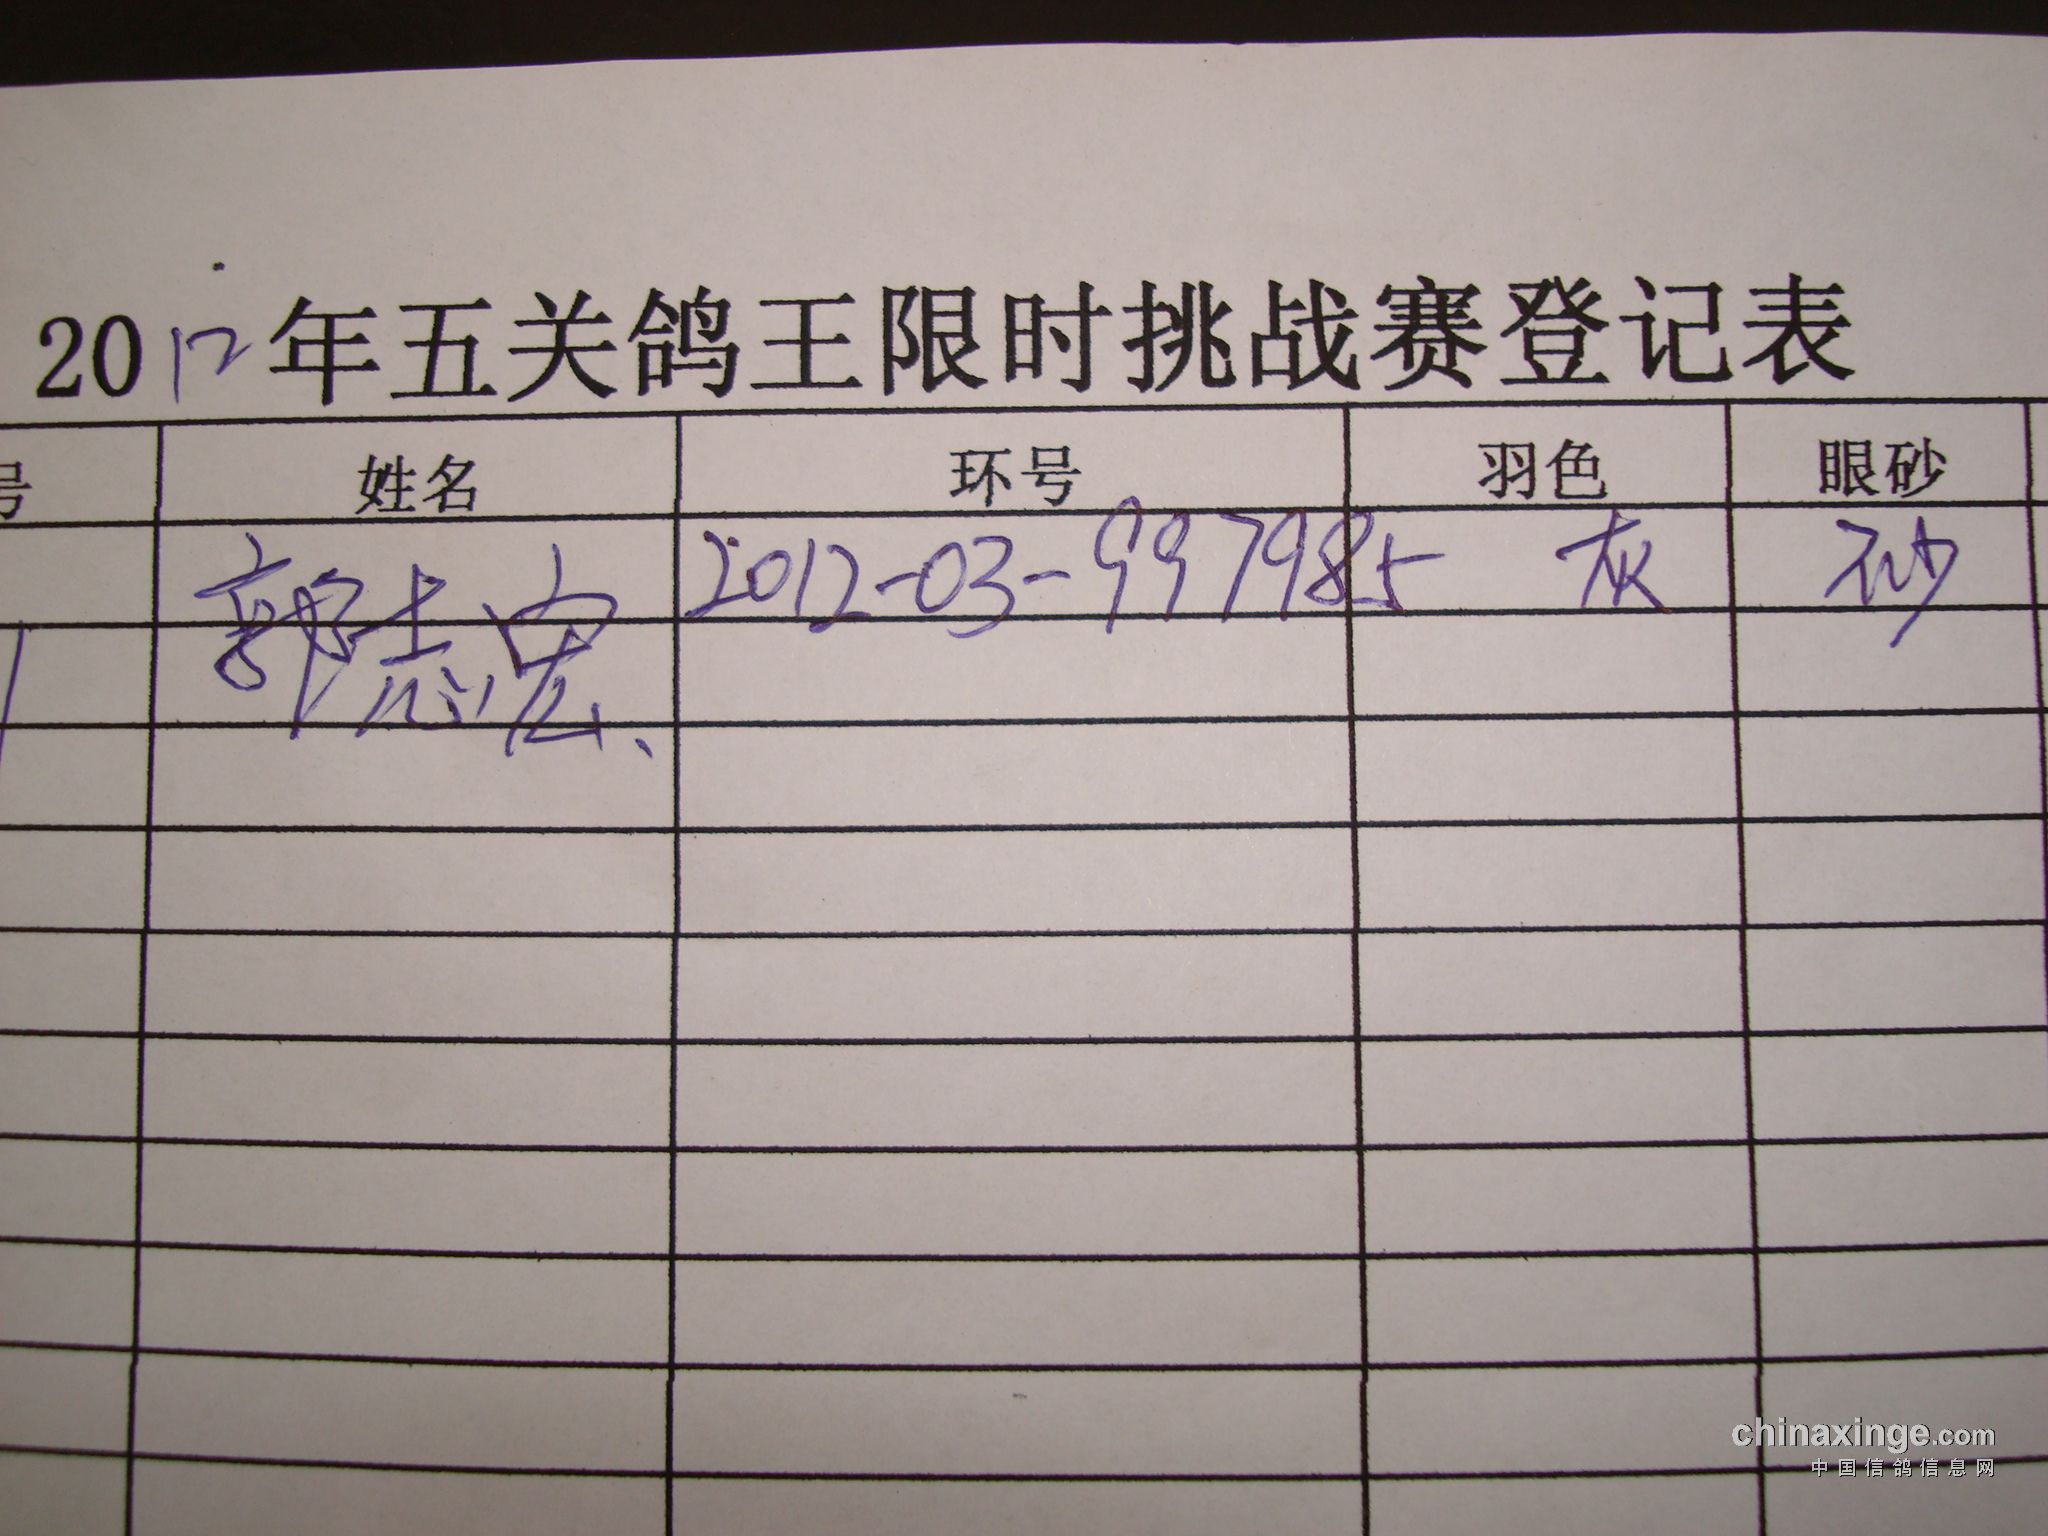 2012年五关鸽王限时挑战赛登记表
号 姓名 环号 羽色 眼砂
郭志宏 2012-03-997985 灰 砂
chinaxinge.com
中国信鸽信息网